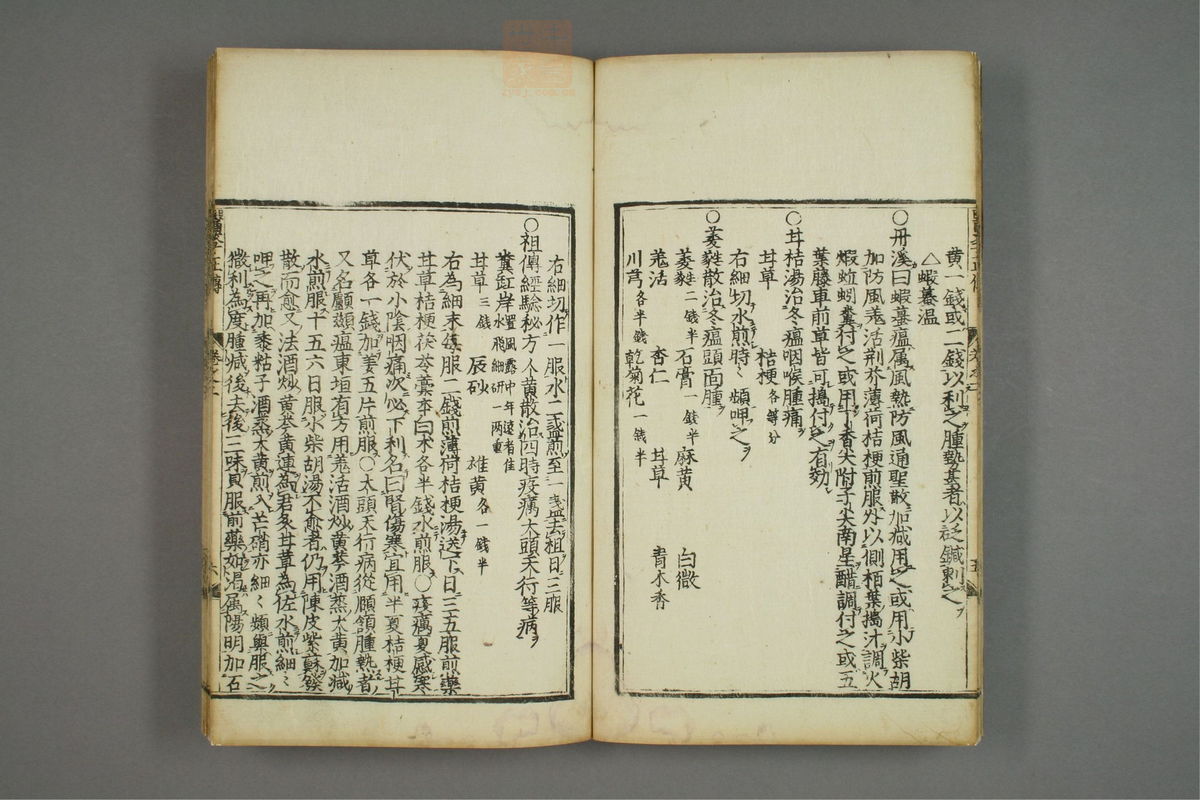 黄一錢或二錢以利之腫勢甚者以砭鍼刺之
△蝦蟇温
○丹溪曰蝦蟇瘟属風熱防風通聖散加减用之或用小柴胡
加防風羗活荆芥薄荷桔梗煎服外以側栢葉搗汁調火
蝦蚯蚓糞付之或用丁香尖附子尖南星醋調付之或五
葉藤車前草皆可搗付之有効
○甘桔湯治冬瘟咽喉腫痛
甘草 桔梗各等分
右細切水煎時〻頻呷之
○葳蕤散治冬瘟頭面腫
葳蕤二錢半 石膏一錢半 麻黄 白微
羗活 杏仁 甘草 青木香
川芎各半錢 乾菊花一錢半
右細切作一服水二盞煎至一盞去柤日三服
○祖傳經驗秘方人黄散治四時疫癘大頭天行等病
糞缸岸置風露中年遠者佳水飛細研一两重
甘草三錢 辰砂 雄黄各一錢半
右為細末每服二錢煎薄荷桔梗湯送下日三五服煎藥
甘草桔梗茯苓藁本白术各半錢水煎服○疫癘夏感寒
伏於小陰咽痛次必下利名曰腎傷寒宜用半夏桔梗甘
草各一錢加姜五片煎服○大頭天行病從頤頷腫熱者
又名鸕鷀瘟東垣有方用羗活酒炒黄芩酒蒸大黄加减
水煎服十五六日服小柴胡湯不愈者仍用陳皮紫蘇發
散而愈又法酒炒黄芩黄連為君炙甘草為佐水煎細〻
呷之再加黍粘子酒蒸大黄煎入芒硝亦細〻頻與服之
微利為度腫减後去後三味只服前藥如渴属陽明加石